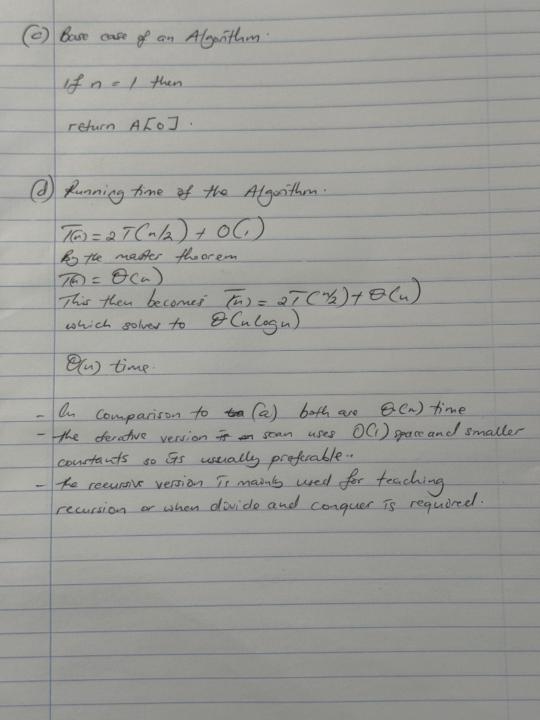 (c) Base case of an Algorithm.
if n = 1 then
return A[0].
(d) Running time of the Algorithm.
T(n) = 2T(n/2) + O(1)
By the master theorem
T(n) = Θ(n)
This then becomes T(n) = 2T(n/2) + Θ(n)
which solves to Θ(n log n)
Θ(n) time.
- In comparison to (a) both are Θ(n) time
- the iterative version scan uses O(1) space and smaller
constants so its usually preferable..
- the recursive version is mainly used for teaching
recursion or when divide and conquer is required.